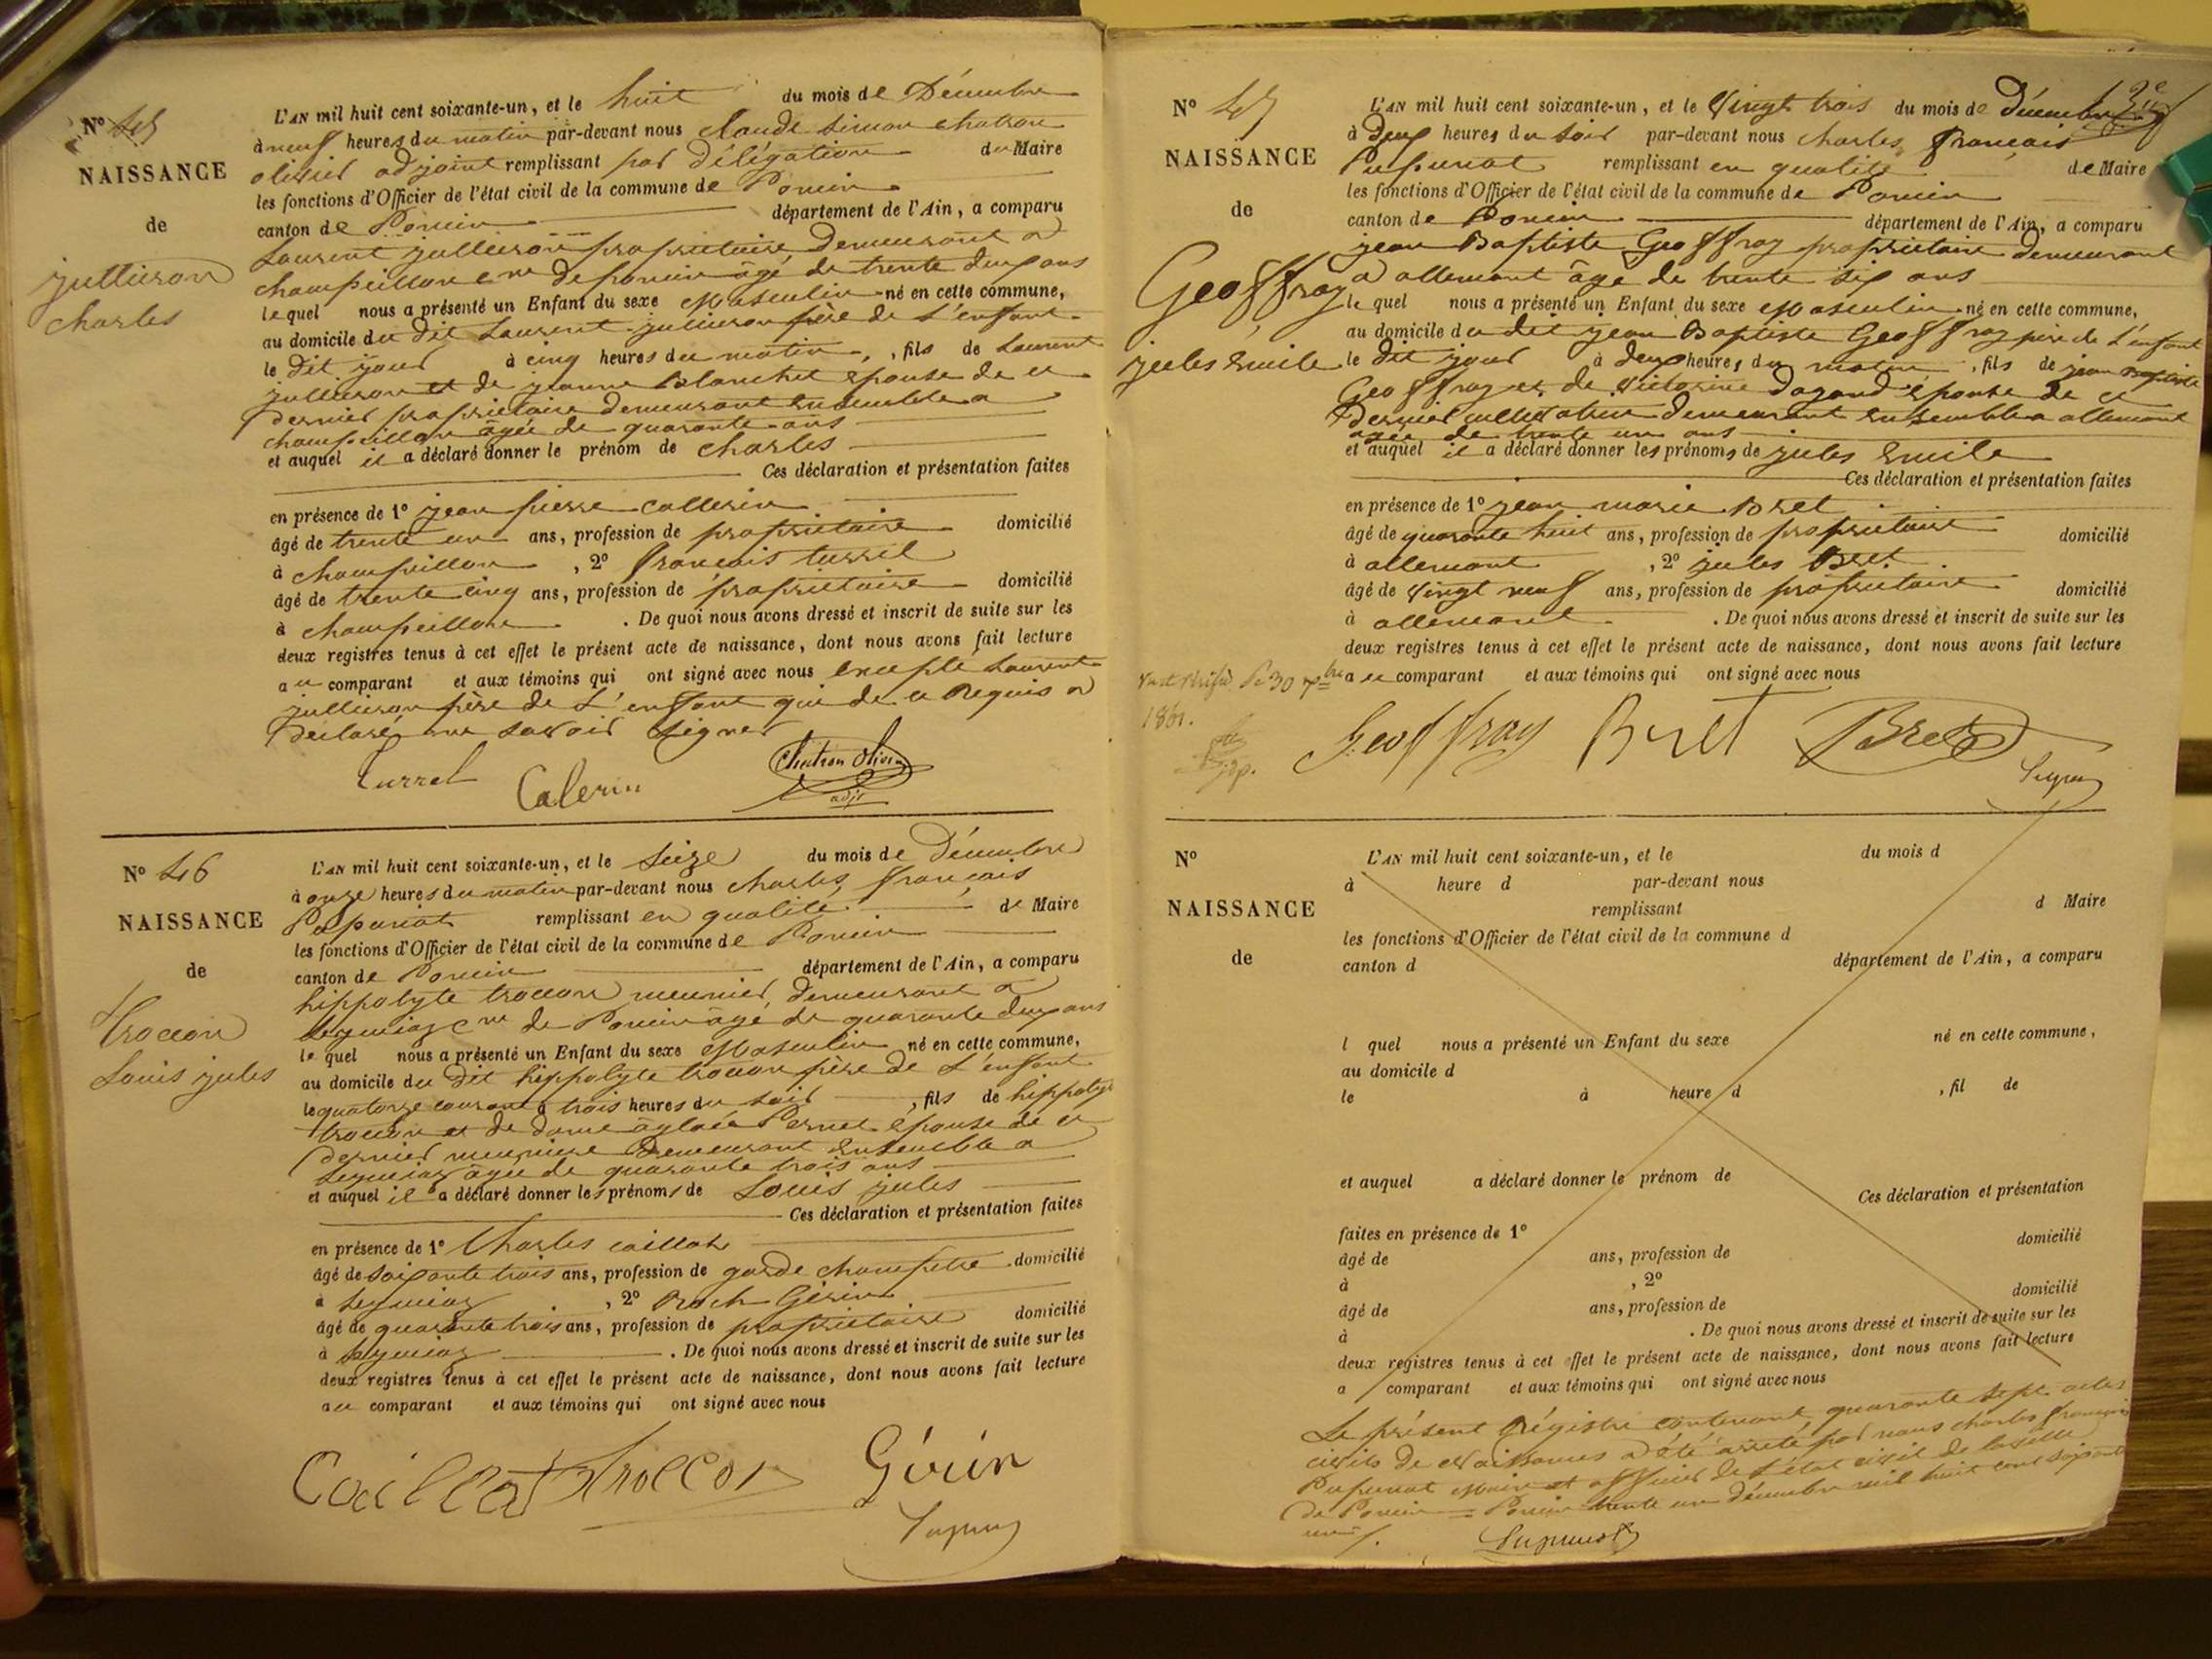 N° 45
NAISSANCE
de
jullieron
charles
L'AN mil huit cent soixante-un, et le huit du mois de Décembre
à neuf heures du matin par-devant nous claude simon chatron
olivier adjoint remplissant par délégation du Maire
les fonctions d'Officier de l'état civil de la commune de Poncin
canton de Poncin département de l'Ain, a comparu
Laurent jullieron propriétaire, demeurant a
champeillon cne de poncin âgé de trente deux ans
lequel nous a présenté un Enfant du sexe Masculin né en cette commune,
au domicile du dit Laurent jullieron père de L'enfant
le dit jour à cinq heures du matin, fils de Laurent
jullieron et de jeanne Blanchet épouse de ce
dernier propriétaire demeurant ensemble a
champeillon âgée de quarante ans
et auquel il a déclaré donner le prénom de charles
Ces déclaration et présentation faites
en présence de 1° jean pierre callerin
âgé de trente un ans, profession de propriétaire domicilié
à champeillon, 2° françois turrel
âgé de trente cinq ans, profession de propriétaire domicilié
à champeillon. De quoi nous avons dressé et inscrit de suite sur les
deux registres tenus à cet effet le présent acte de naissance, dont nous avons fait lecture
au comparant et aux témoins qui ont signé avec nous excepté Laurent
jullieron père de L'enfant qui de ce Requis a
déclaré ne savoir signer
Turrel Calerin Chatron Olivier
adjt
N° 46
NAISSANCE
de
Troccon
Louis jules
L'AN mil huit cent soixante-un, et le seize du mois de Décembre
à onze heures du matin par-devant nous charles, françois
Pupunat remplissant en qualité de Maire
les fonctions d'Officier de l'état civil de la commune de Poncin
canton de Poncin département de l'Ain, a comparu
hippolyte troccon meunier, demeurant a
leymiaz cne de Poncin âgé de quarante deux ans
le quel nous a présenté un Enfant du sexe Masculin né en cette commune,
au domicile du dit hippolyte troccon père de L'enfant
le quatorze courant à trois heures du soir, fils de hippolyte
troccon et de dame aglaée Pernet épouse de ce
dernier meunière demeurant ensemble a
leymiaz âgée de quarante trois ans
et auquel il a déclaré donner les prénoms de Louis jules
Ces déclaration et présentation faites
en présence de 1° Charles caillat
âgé de soixante trois ans, profession de garde champêtre domicilié
à leymiaz, 2° Roch Gérin
âgé de quarante trois ans, profession de propriétaire domicilié
à leymiaz. De quoi nous avons dressé et inscrit de suite sur les
deux registres tenus à cet effet le présent acte de naissance, dont nous avons fait lecture
au comparant et aux témoins qui ont signé avec nous
Caillat Troccon Gérin
N° 47
NAISSANCE
de
Geoffray
jules Emile
L'AN mil huit cent soixante-un, et le Vingt trois du mois de décembre
à deux heures du soir par-devant nous charles, françois
Pupunat remplissant en qualité de Maire
les fonctions d'Officier de l'état civil de la commune de Poncin
canton de Poncin département de l'Ain, a comparu
jean Baptiste Geoffray propriétaire demeurant
a allement âgé de trente six ans
le quel nous a présenté un Enfant du sexe Masculin né en cette commune,
au domicile du dit jean Baptiste Geoffray père de L'enfant
le dit jour à deux heures du matin, fils de jean Baptiste
Geoffray et de Victorine dagand épouse de ce
dernier cultivatrice demeurant ensemble a allement
agée de trente un ans
et auquel il a déclaré donner les prénoms de jules Emile
Ces déclaration et présentation faites
en présence de 1° jean marie Bret
âgé de quarante huit ans, profession de propriétaire domicilié
à allement, 2° jules Bret
âgé de Vingt neuf ans, profession de propriétaire domicilié
à allement. De quoi nous avons dressé et inscrit de suite sur les
deux registres tenus à cet effet le présent acte de naissance, dont nous avons fait lecture
au comparant et aux témoins qui ont signé avec nous
1861.
Geoffray Bret Bret
N°
NAISSANCE
de
L'AN mil huit cent soixante-un, et le du mois d
à heure d par-devant nous
remplissant d Maire
les fonctions d'Officier de l'état civil de la commune d
canton d département de l'Ain, a comparu
l quel nous a présenté un Enfant du sexe né en cette commune,
au domicile d
le à heure d , fil de
et auquel a déclaré donner le prénom de
Ces déclaration et présentation
faites en présence de 1°
âgé de ans, profession de domicilié
à , 2°
âgé de ans, profession de domicilié
à . De quoi nous avons dressé et inscrit de suite sur les
deux registres tenus à cet effet le présent acte de naissance, dont nous avons fait lecture
a comparant et aux témoins qui ont signé avec nous
Le présent Régistre contenant quarante sept actes
civils de Naissances a été arrêté par nous charles françois
Pupunat Maire et officier de l'état civil de la ville
de Poncin = Poncin trente un décembre mil huit cent soixante
un
Pupunat